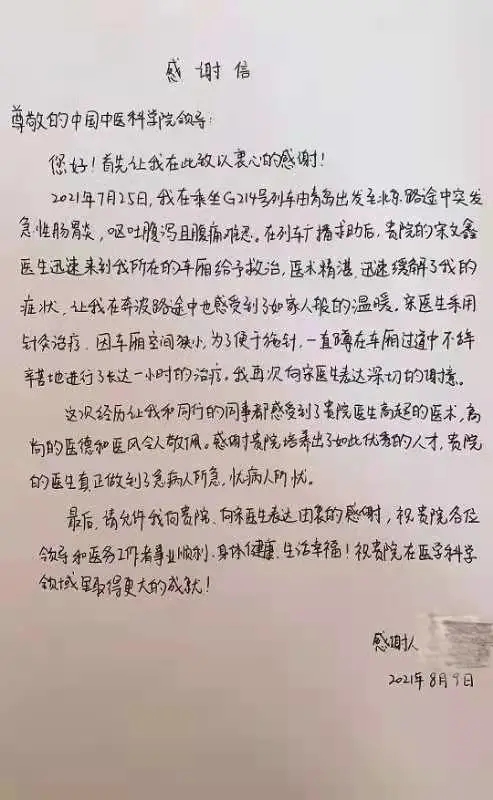 感谢信
尊敬的中国中医科学院领导:
您好！首先让我在此致以衷心的感谢！
2021年7月25日,我在乘坐G214号列车由青岛出发至北京路途中突发
急性肠胃炎,呕吐腹泻且腹痛难忍。在列车广播求助后,贵院的宋文鑫
医生迅速来到我所在的车厢给予救治,医术精湛,迅速缓解了我的
症状,让我在奔波路途中也感受到了如家人般的温暖。宋医生采用
针灸治疗,因车厢空间狭小,为了便于施针,一直蹲在车厢过道中不辞
辛苦地进行了长达一小时的治疗。我再次向宋医生表达深切的谢意。
这次经历让我和同行的同事都感受到了贵院医生高超的医术,高
尚的医德和医风令人敬佩。感谢贵院培养出了如此优秀的人才,贵院
的医生真正做到了急病人所急,忧病人所忧。
最后,请允许我向贵院、向宋医生表达由衷的感谢,祝贵院各位
领导和医务工作者事业顺利、身体健康、生活幸福！祝贵院在医学科学
领域里取得更大的成就！
感谢人
2021年8月9日